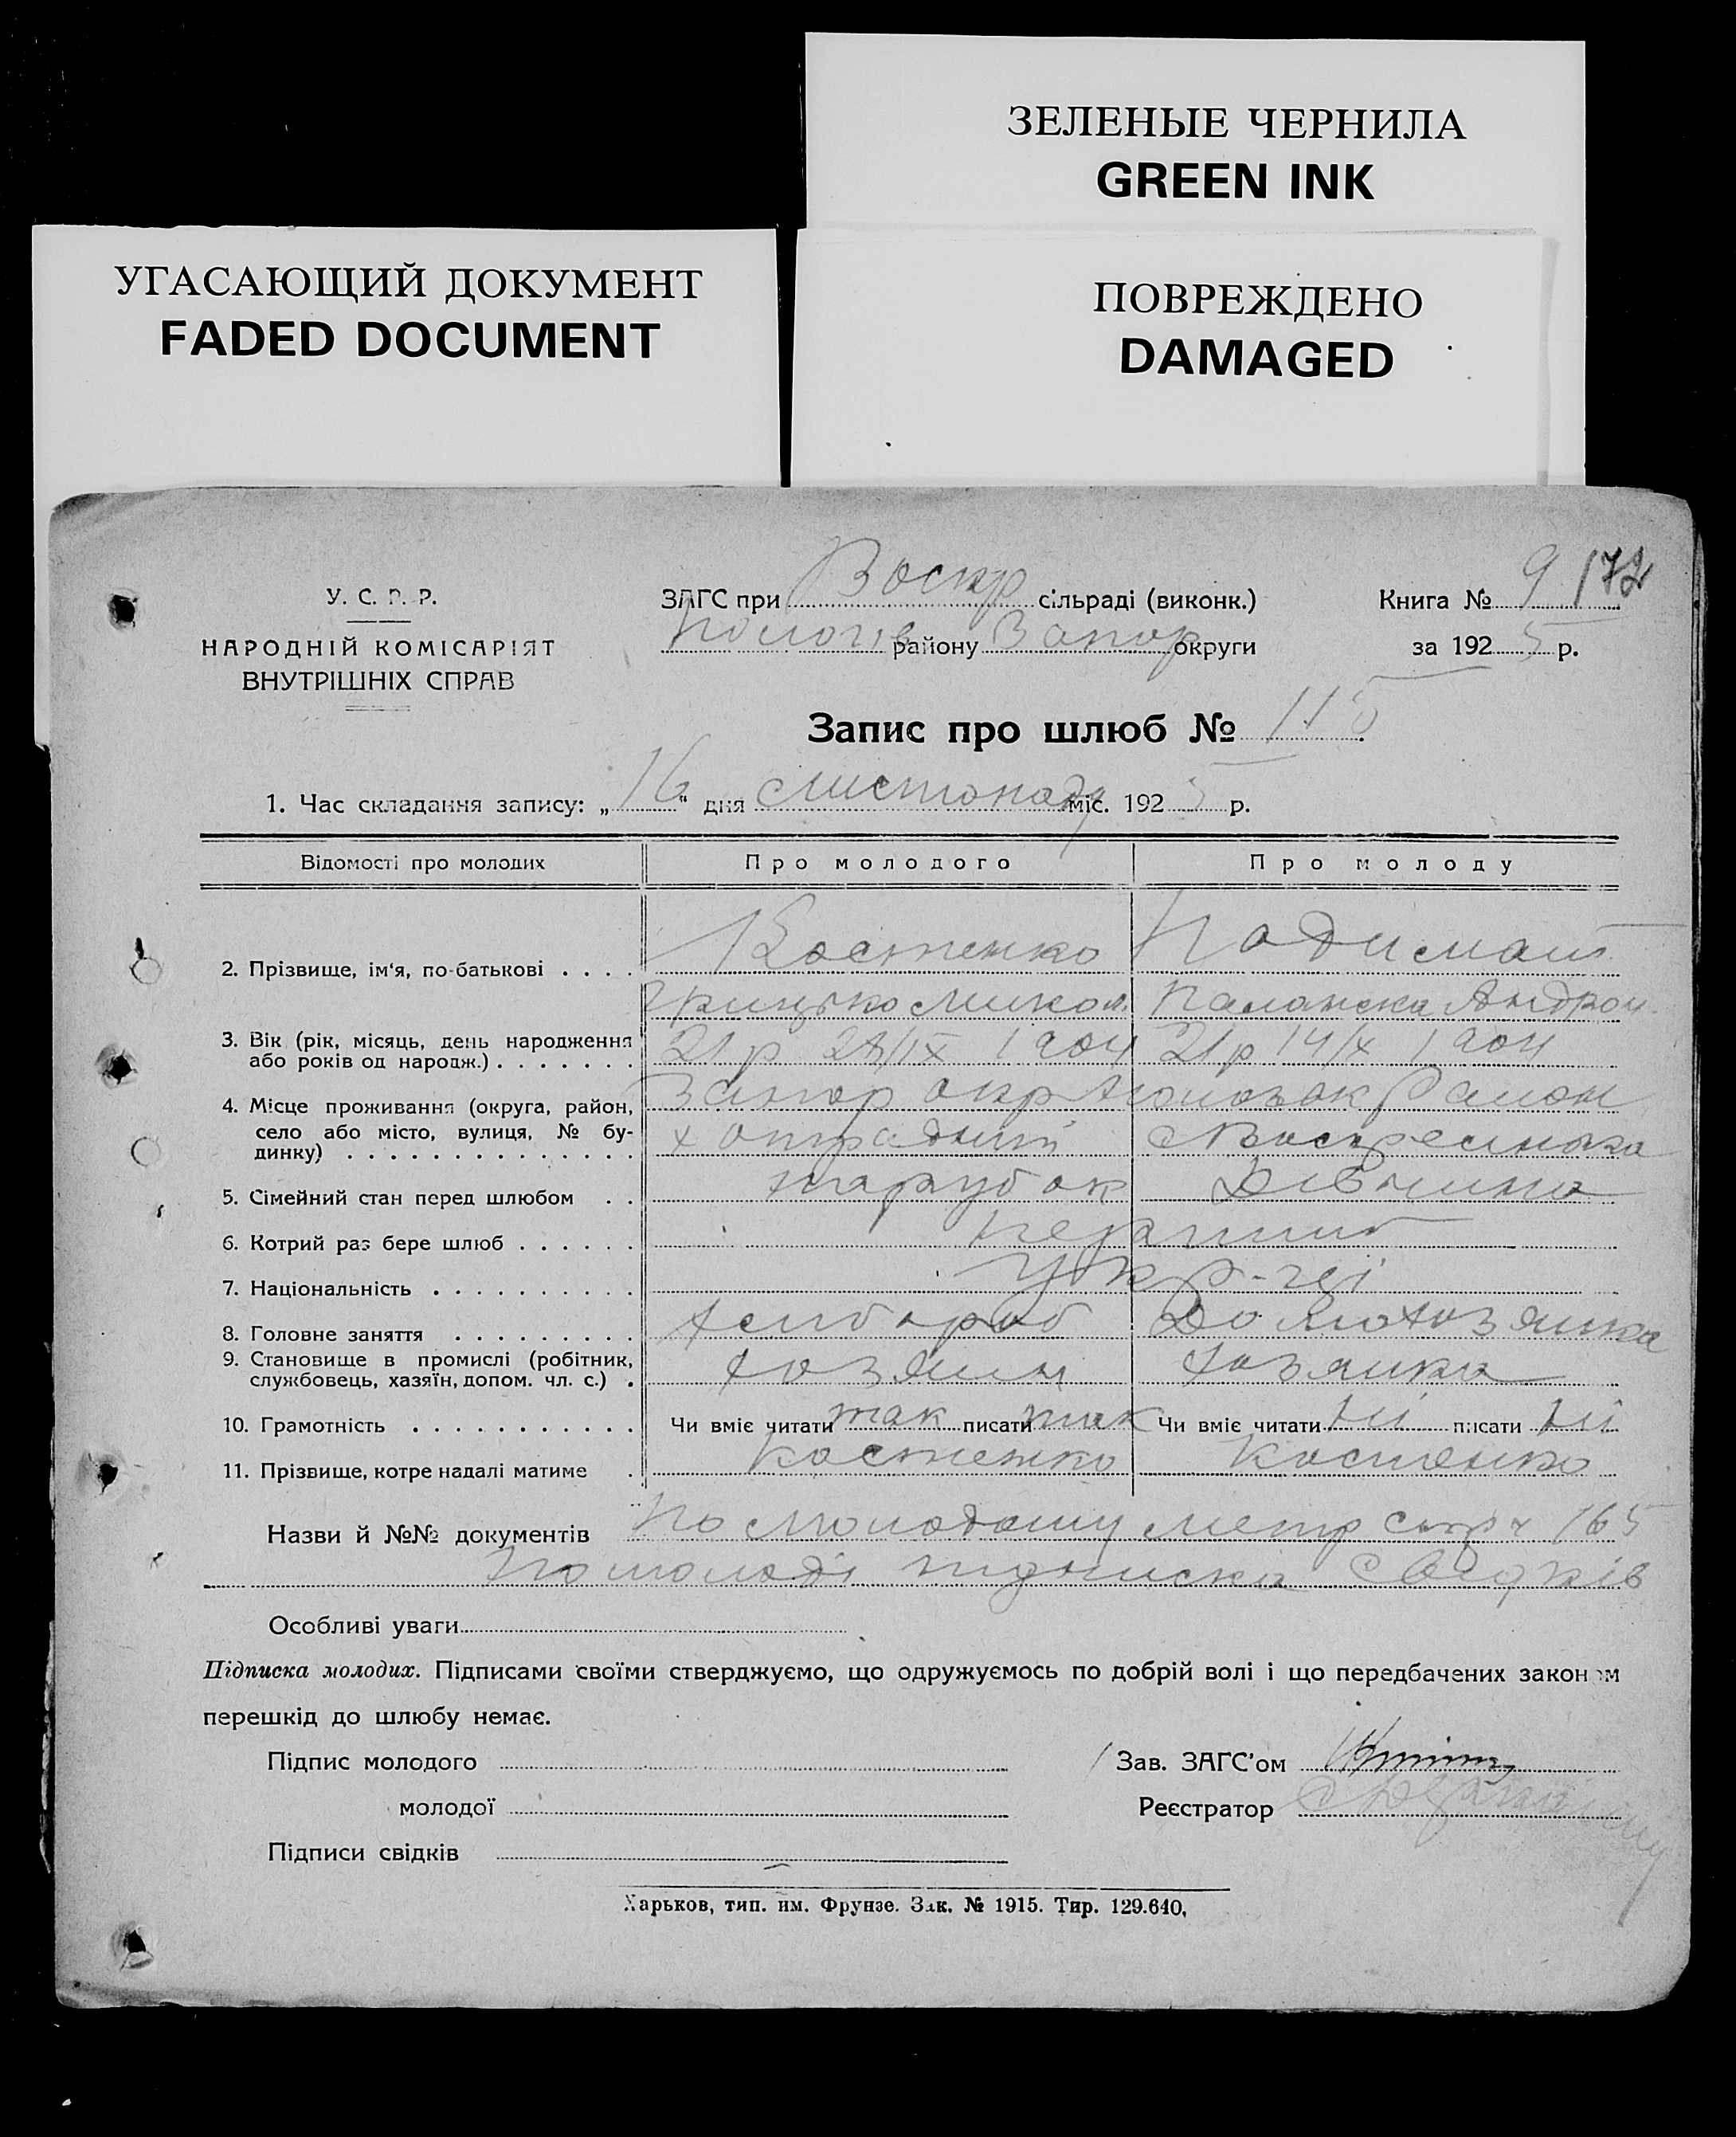 ЗЕЛЕНЫЕ ЧЕРНИЛА
GREEN INK
УГАСАЮЩИЙ ДОКУМЕНТ
FADED DOCUMENT
ПОВРЕЖДЕНО
DAMAGED
У. С. Р. Р.
НАРОДНІЙ КОМІСАРІЯТ
ВНУТРІШНІХ СПРАВ
ЗАГС при Воскр сільраді (виконк.)
Пологів району Запор округи
Книга № 9 172
за 1925 р.
Запис про шлюб № 115
1. Час складання запису: „16“ дня листопада міс. 1925 р.
Відомості про молодих Про молодого Про молоду
2. Прізвище, ім'я, по-батькові . . . . Костенко
Грицько Микол Андрон
3. Вік (рік, місяць, день народження 21 р 28/IX 1904 21 р 14/X 1904
або років од народж.) . . . . . . .
4. Місце проживання (округа, район, Запор окр Район
село або місто, вулиця, № бу- х отрадний с Воскресенька
динку) . . . . . . . . . . . . . .
5. Сімейний стан перед шлюбом . . парубок Дівчина
6. Котрий раз бере шлюб . . . . . . перший
7. Національність . . . . . . . . . . Укр-ці
8. Головне заняття . . . . . . . . . хлібороб Домохозяйка
9. Становище в промислі (робітник, хозяин хозяйка
службовець, хазяїн, допом. чл. с.) .
10. Грамотність . . . . . . . . . . . Чи вміє читати так писати так Чи вміє читати ні писати ні
11. Прізвище, котре надалі матиме . Костенко Костенко
Назви й №№ документів По молодому метр 165
По молоді підписка свідків
Особливі уваги
Підписка молодих. Підписами своїми стверджуємо, що одружуємось по добрій волі і що передбачених законом
перешкід до шлюбу немає.
Підпис молодого Зав. ЗАГС'ом
молодої Реєстратор
Підписи свідків
Харьков, тип. им. Фрунзе. Зак. № 1915. Тир. 129.640.